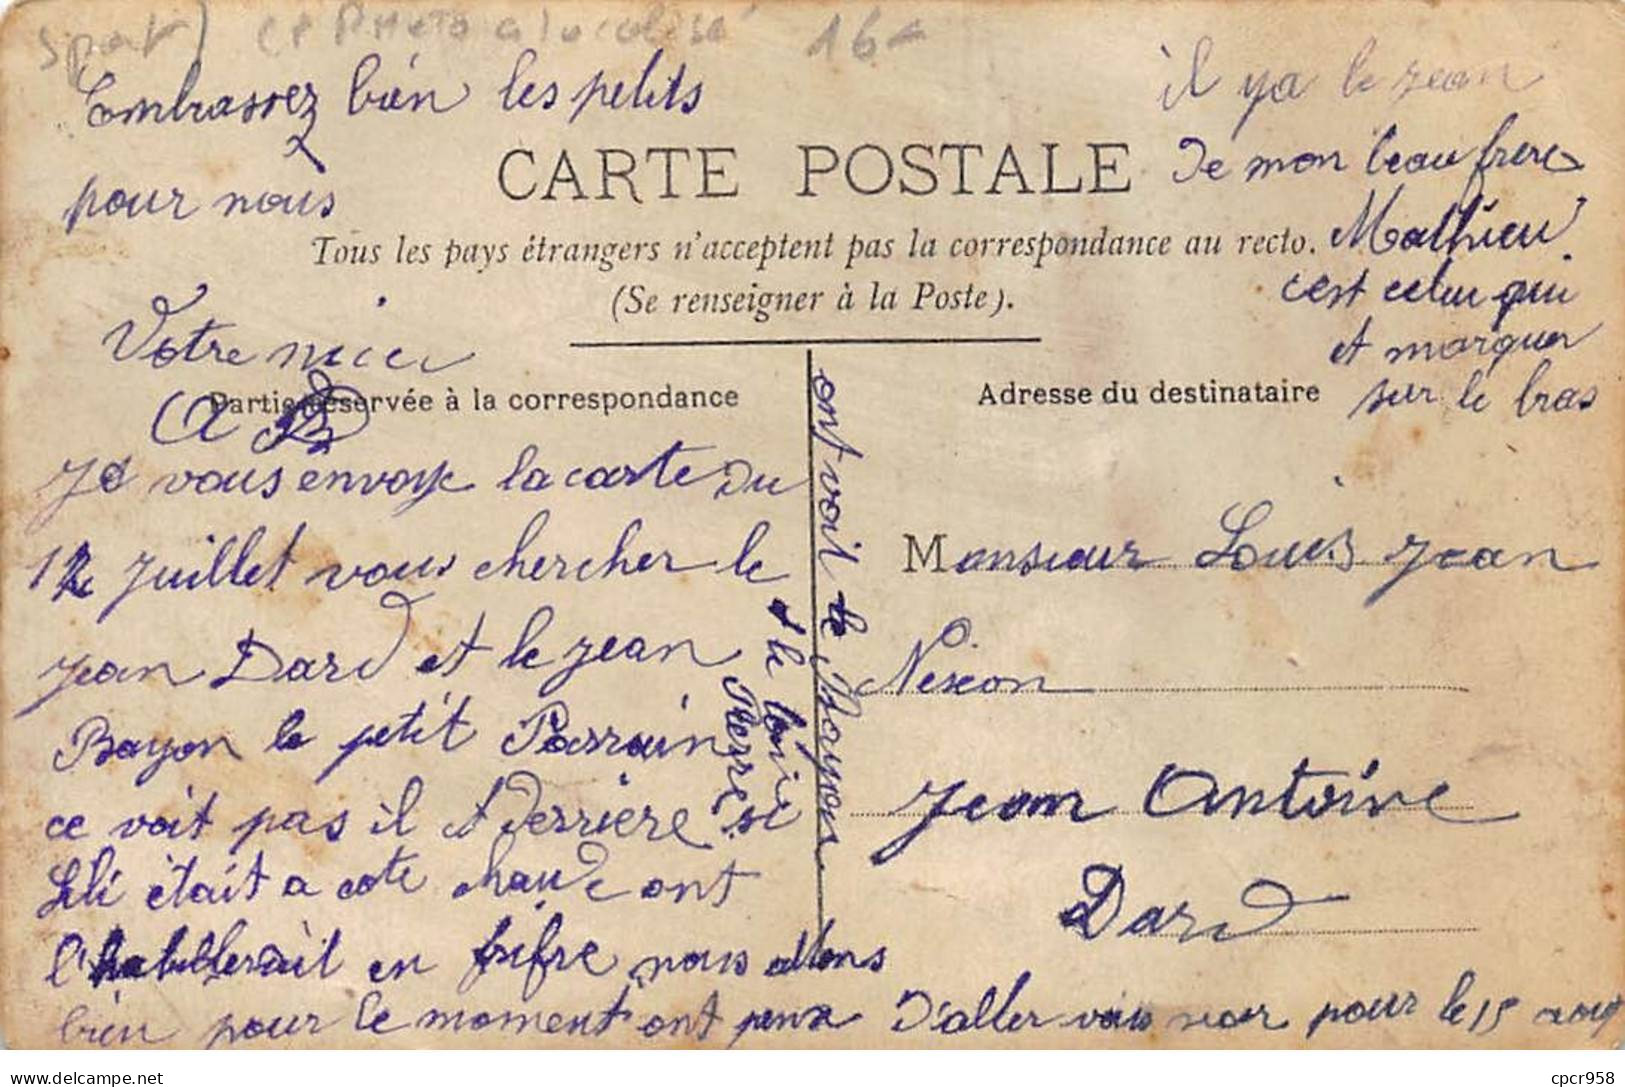 Sport) CP Photo a localisé 16€
Embrassez bien les petits
pour nous
Votre niece
CARTE POSTALE
Tous les pays étrangers n'acceptent pas la correspondance au recto.
(Se renseigner à la Poste).
Partie réservée à la correspondance
Je vous envoye la carte du
12 Juillet vous chercher le
Jean Dard et le Jean
Bayon le petit Parrain
ce voit pas il et derriere
Lili était a coté chaude ont
l'habillerait en fifre nous allons
bien pour le moment ont peux d'aller vous voir pour le 15 aout
ont voit le Bayon
Pierre
il ya le Jean
de mon beau frere
Mathieu
cest celui qui
et marquer
sur le bras
Adresse du destinataire
Monsieur Louis Jean
Nexon
Jean Antoine
Dard
cpcr958